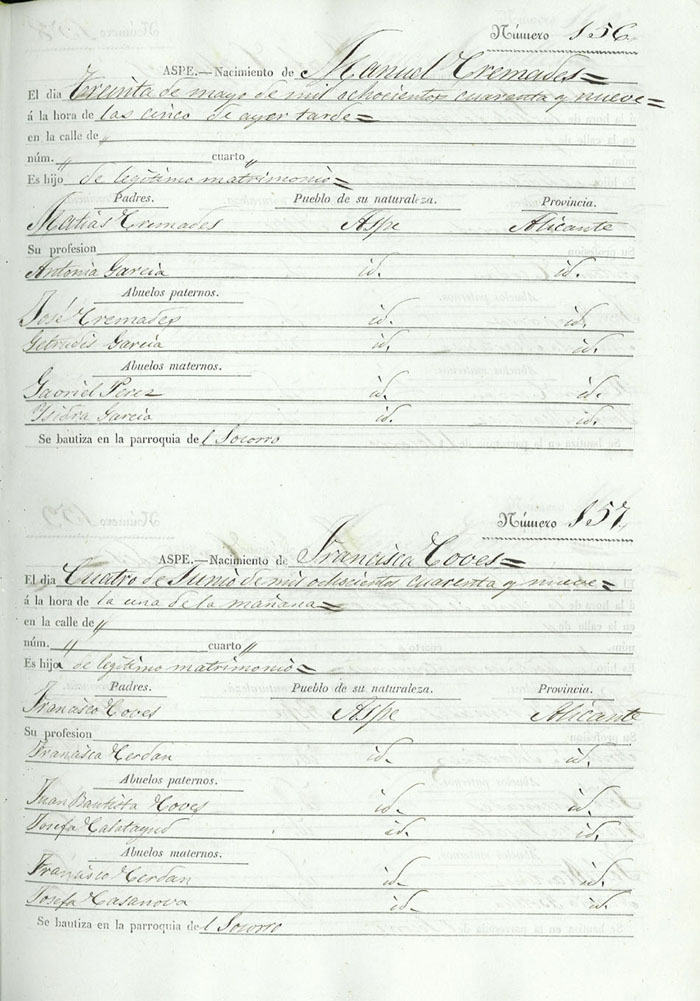 Número 156
ASPE.—Nacimiento de Manuel Cremades=
El dia Treinta de mayo de mil ochocientos cuarenta y nueve=
á la hora de las cinco de ayer tarde=
en la calle de "
núm. " cuarto "
Es hijo de legitimo matrimonio=
Padres. Pueblo de su naturaleza. Provincia.
Matias Cremades Aspe Alicante
Su profesion
Antonia Garcia id. id.
Abuelos paternos.
José Cremades id. id.
Getrudis Garcia id. id.
Abuelos maternos.
Gabriel Perez id. id.
Ysidra Garcia id. id.
Se bautiza en la parroquia del Socorro
Número 157.
ASPE.—Nacimiento de Francisca Coves=
El dia Cuatro de Junio de mil ochocientos cuarenta y nueve=
á la hora de la una de la mañana=
en la calle de "
núm. " cuarto "
Es hija de legitimo matrimonio=
Padres. Pueblo de su naturaleza. Provincia.
Francisco Coves Aspe Alicante
Su profesion
Francisca Cerdan id. id.
Abuelos paternos.
Juan Bautista Coves id. id.
Josefa Calatayud id. id.
Abuelos maternos.
Francisco Cerdan id. id.
Josefa Casanova id. id.
Se bautiza en la parroquia del Socorro